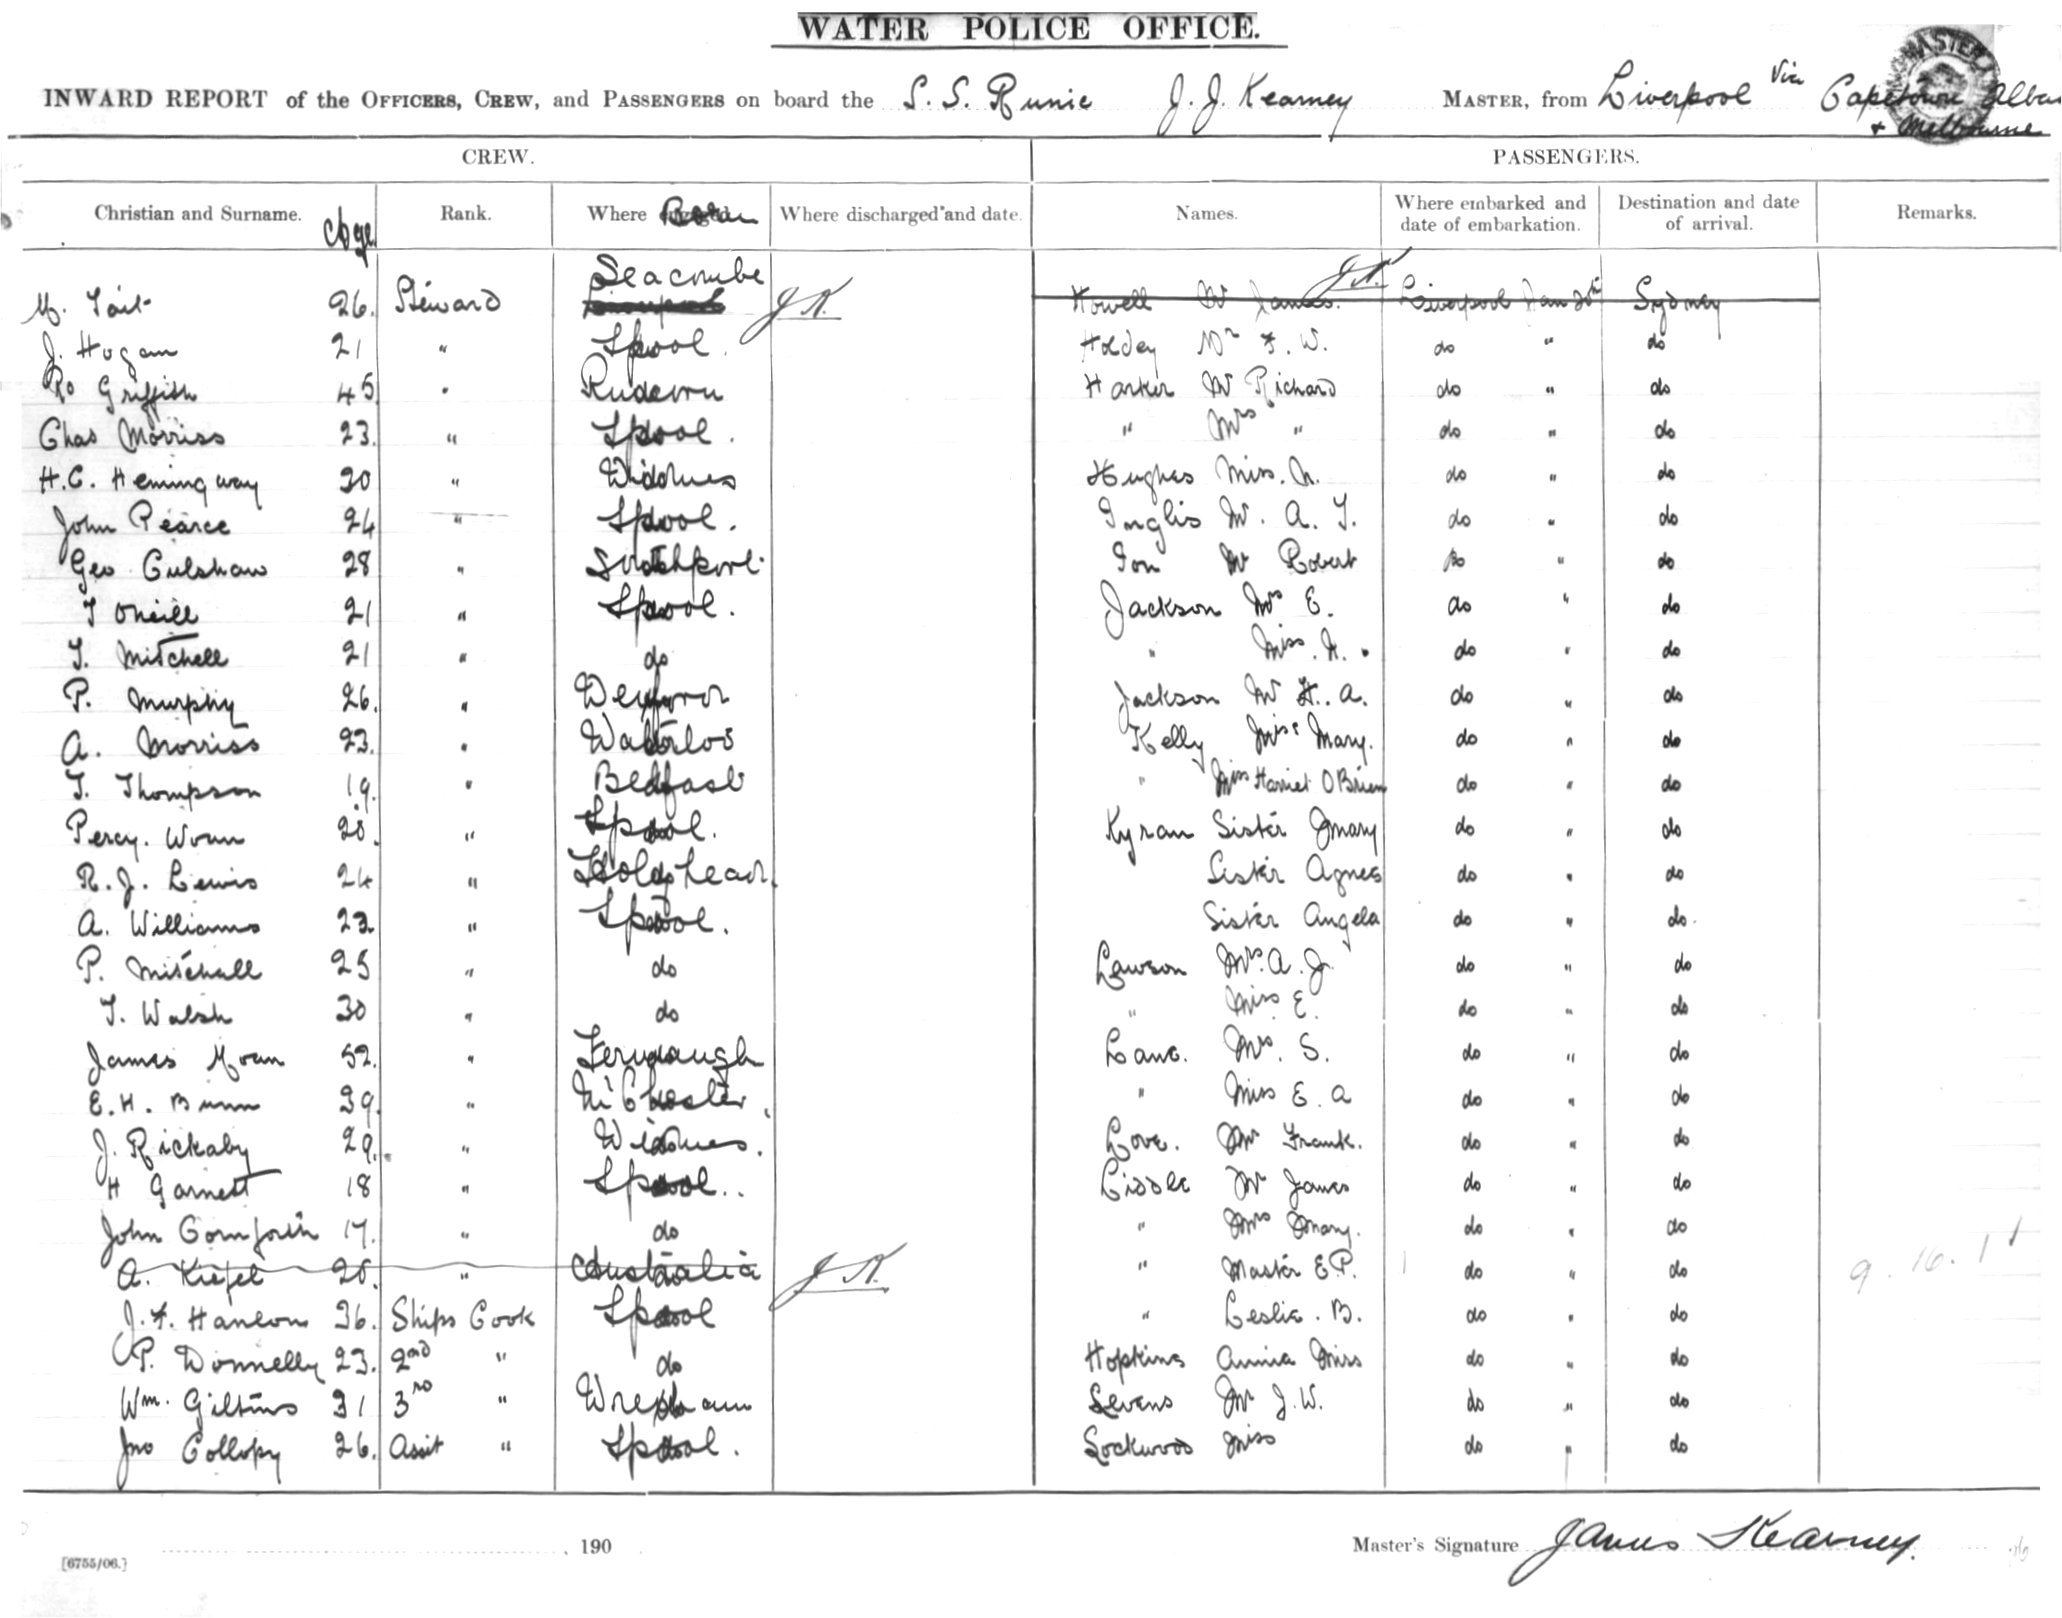 WATER POLICE OFFICE.
INWARD REPORT of the OFFICERS, CREW, and PASSENGERS on board the S. S. Runic J. J. Kearney MASTER, from Liverpool via Capetown Alban
+ Melbourne
CREW. PASSENGERS.
Christian and Surname. Age Rank. Where Born Where discharged and date. Names. Where embarked and date of embarkation. Destination and date of arrival. Remarks.
M. Tait 26. Steward Seacombe J K. Howell Mr James. Liverpool Jan 20th Sydney J K.
J. Hogan 21 " Lpool. Holdey Mr F. W. do " do
Ro Griffith 45 " Harker Mr Richard do " do
Chas Morriss 23. " Lpool. " Mrs " do " do
H. C. Hemingway 30 " Widnes Hughes Miss. do " do
John Pearce 24 " Lpool. Inglis Mr. A. T. do " do
Geo Culshaw 28 " Southport. Ion Mr Robert do " do
T Oneill 21 " Lpool. Jackson Mrs E. do " do
T. Mitchell 21 " do " Miss. do " do
P. Murphy 26. " Wexford Jackson Mr H. A. do " do
A. Morriss 23. " Waterloo Kelly Miss Mary. do " do
T. Thompson 19. " Belfast " Miss Harriet O Brien do " do
Percy. " Lpool. Kyran Sister Mary do " do
R. J. Lewis 24 " Holyhead. Sister Agnes do " do
A. Williams 23. " Lpool. Sister Angela do " do.
P. Mitchell 25 " do Lawson Mrs. A. J. do " do
T. Walsh 30 " do " Miss E. do " do
James 52. " Lane. Mrs. S. do " do
E. H. Bunn 39. " M'Chester. " Miss E. A do " do
J. Rickaby 29. " Widnes. Love. Mr Frank. do " do
H Garnett 18 " Lpool.. Liddle Mr James do " do
John Cornforth 17. " do " Mrs Mary. do " do
A. Kiefel " Australia J K. " Master E. P. do " do
J. F. Hanlon 36. Ships Cook Lpool " Leslie. B. do " do
P. Donnelly 23. 2nd " do Hopkins Annie Miss do " do
Wm. Giltins 31 3rd " Wrexham Levens Mr J. W. do " do
Jno Collopy 26. Assit " Lpool. Lockwood Miss do " do
[6755/06.] , 190 Master's Signature James Kearney.